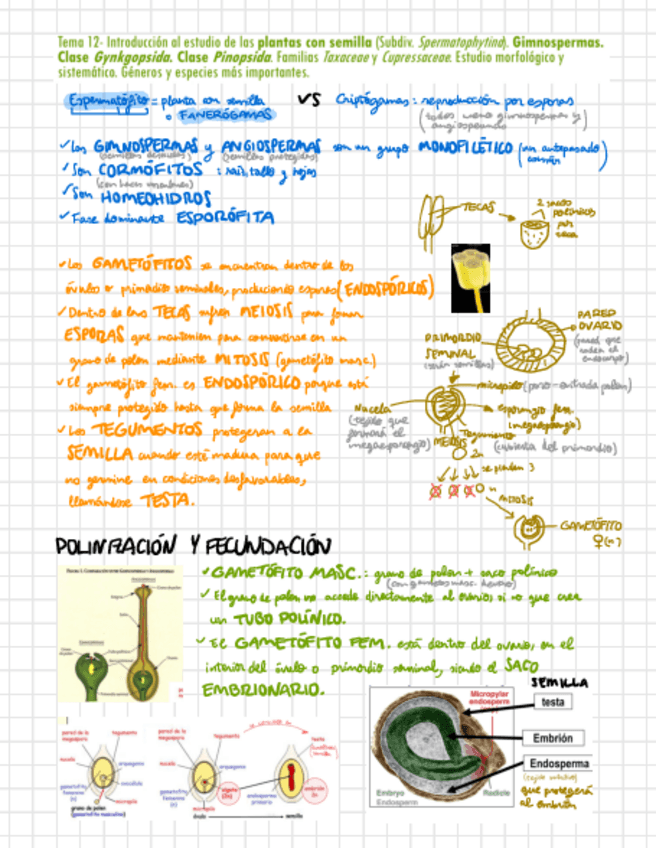 Tema 12- Introducción al estudio de las plantas con semilla (Subdiv. Spermatophytina). Gimnospermas.
Clase Gynkgopsida. Clase Pinopsida. Familias Taxaceae y Cupressaceae. Estudio morfológico y
sistemático. Géneros y especies más importantes.
Espermatófito = planta con semilla VS Criptógamas: reproducción por esporas
o FANERÓGAMAS
(todos menos gimnospermas y
angiospermas)
✓ Las GIMNOSPERMAS y ANGIOSPERMAS son un grupo MONOFILÉTICO (un antepasado
común)
(semillas desnudas) (semillas protegidas)
✓ Son CORMÓFITOS: raíz, tallo y hojas
(con haces vasculares)
✓ Son HOMEOHIDROS
✓ Fase dominante ESPORÓFITA
TECAS
2 sacos
polínicos
por
teca
✓ Los GAMETÓFITOS se encuentran dentro de los
óvulos o primordios seminales, produciendo esporas (ENDOSPÓRICOS)
✓ Dentro de las TECAS sufren MEIOSIS para formar
ESPORAS que mantienen para convertirse en un
grano de polen mediante MITOSIS (gametófito masc.)
✓ El gametófito fem. es ENDOSPÓRICO porque está
siempre protegido hasta que forma la semilla
✓ Los TEGUMENTOS protegeran a la
SEMILLA cuando esté madura para que
no germine en condiciones desfavorables,
llamándose TESTA.
PARED
OVARIO
(pared que
rodea el
endocarpo)
PRIMORDIO
SEMINAL
(serán semillas)
micropilo (poro-entrada polen)
Nucela
(tejido que
formará el
megasporangio)
esporangio fem.
(megasporangio)
Tegumento
(cubierta del primordio)
MEIOSIS
2n
se pierden 3
n
MITOSIS
GAMETÓFITO
♀ (n)
POLINIZACIÓN Y FECUNDACIÓN
✓ GAMETÓFITO MASC.: grano de polen + saco polínico
✓ El grano de polen no accede directamente al ovario, si no que crea
un TUBO POLÍNICO.
✓ El GAMETÓFITO FEM. está dentro del ovario, en el
interior del óvulo o primordio seminal, siendo el SACO
EMBRIONARIO.
SEMILLA
Micropylar
endosperm
testa
Embrión
Endosperma
(tejido nutritivo)
que protegerá
al embrión
Embryo
Endosperm
Radicle
pared de la
megaspora
tegumento
nucela
arquegonio
gametofito
femenino
(n)
oosfera
micropilo
grano de polen
(gametofito masculino)
pared de la
megaspora
tegumento
nucela
arquegonio
gametofito
femenino
(n)
micropilo
cigoto
(2n)
endosperma
primario
testa
embrión
2n
óvulo
semilla